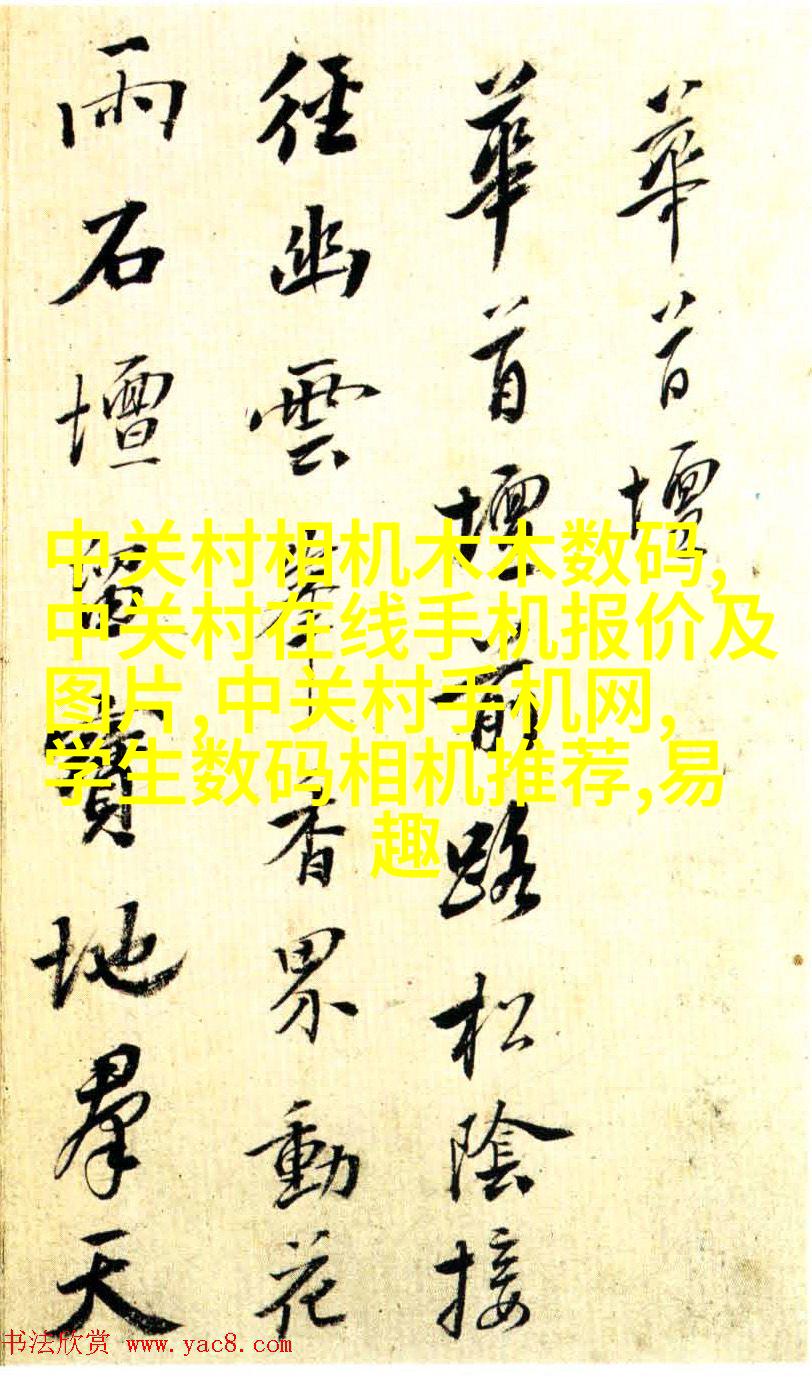 華首壇
華首壇前路松陰接
徑幽雲峯香界動花
雨石壇留寶地羣天
中关村相机木木数码,
中关村在线手机报价及
图片,中关村手机网,
学生数码相机推荐,易
趣
书法欣赏 www.yac8.com